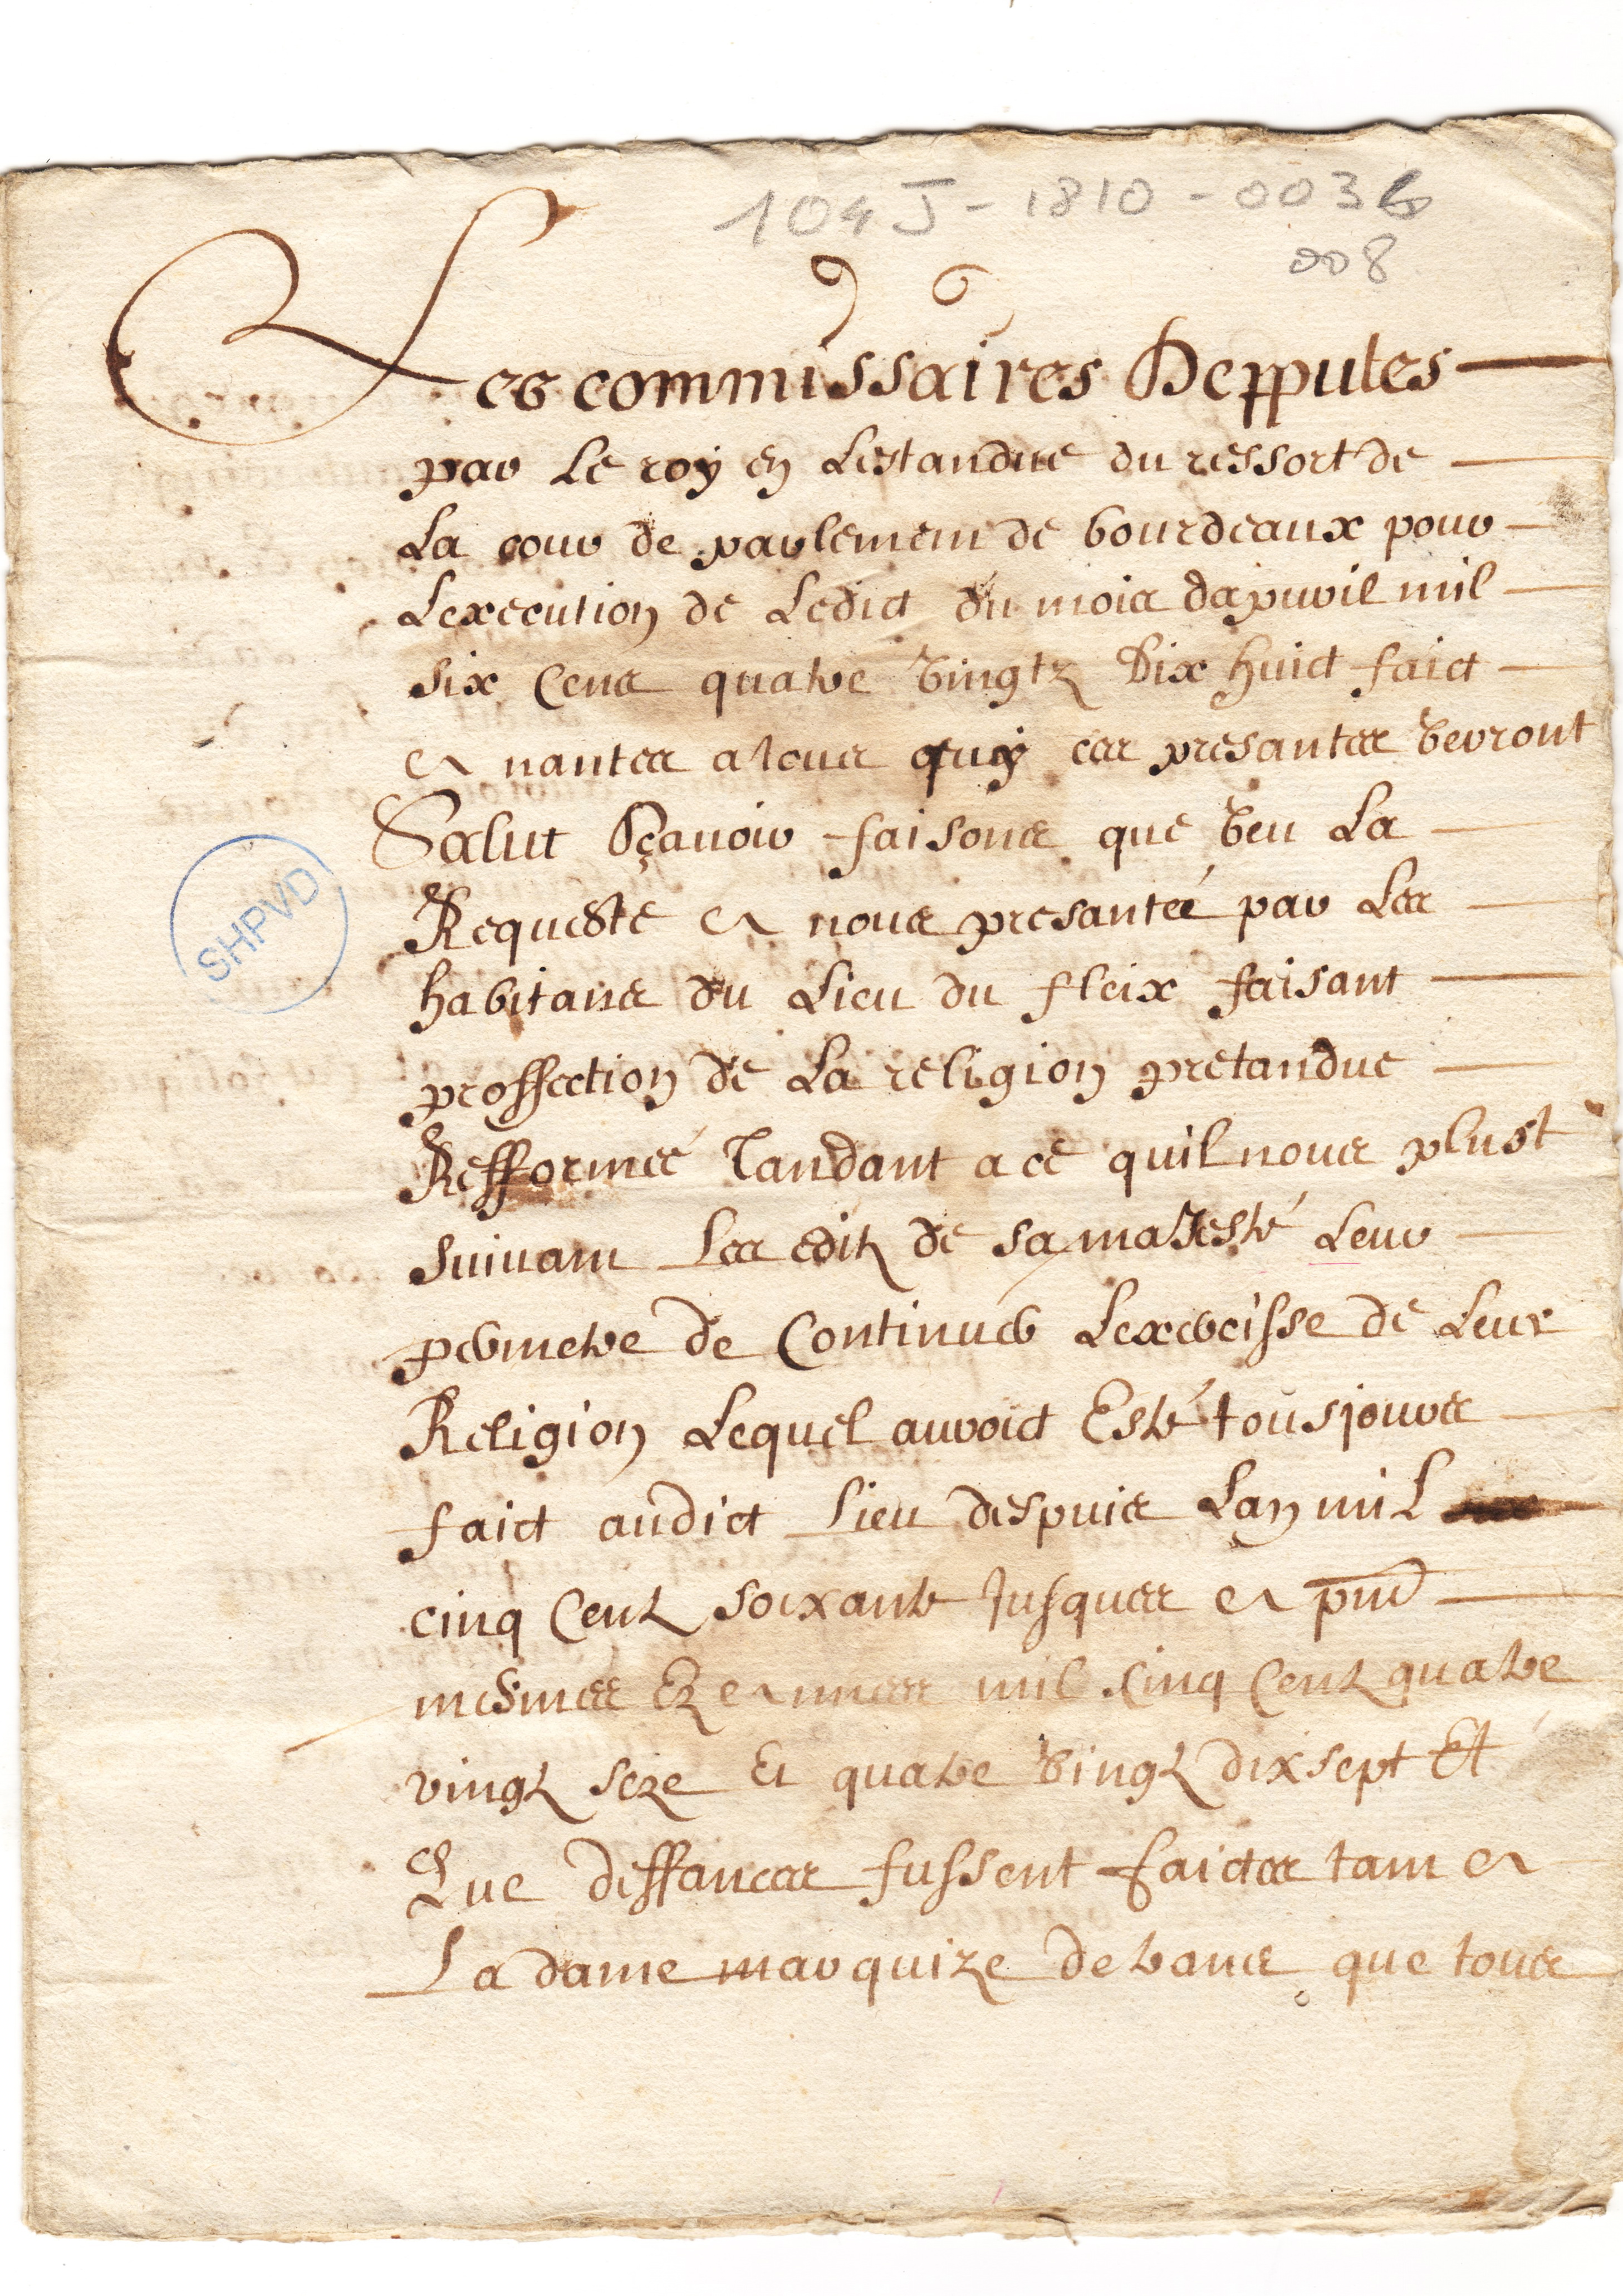 104 J - 1810 - 0036
008
Les commissaires Depputes
par Le roy en Lestandue du ressort de
La cour de parlement de bourdeaux pour
Lexecution de Ledict du mois dapvril mil
six Cens quatre vingtz Dix huict faict
a nantes a tous quy ces presantes verront
Salut Sçavoir faisons que veu La
Requeste a nous presantée par Les
habitans du Lieu du fleix faisant
proffection de La religion pretandue
Refformée Tandant a ce quil nous plust
suivant Les editz de sa maJesté Leur
permetre de Continuer Lexercisse de Leur
Religion Lequel auroict Esté tousjours
faict audict Lieu despuis Lan mil
cinq Centz soixante Jusques a pnt
mesmes Ez annees mil Cinq Centz quatre
vingtz seze Et quatre vingtz dix sept Et
Que deffances fussent faictes tant a
La dame marquize de trans que tous
SHPVD